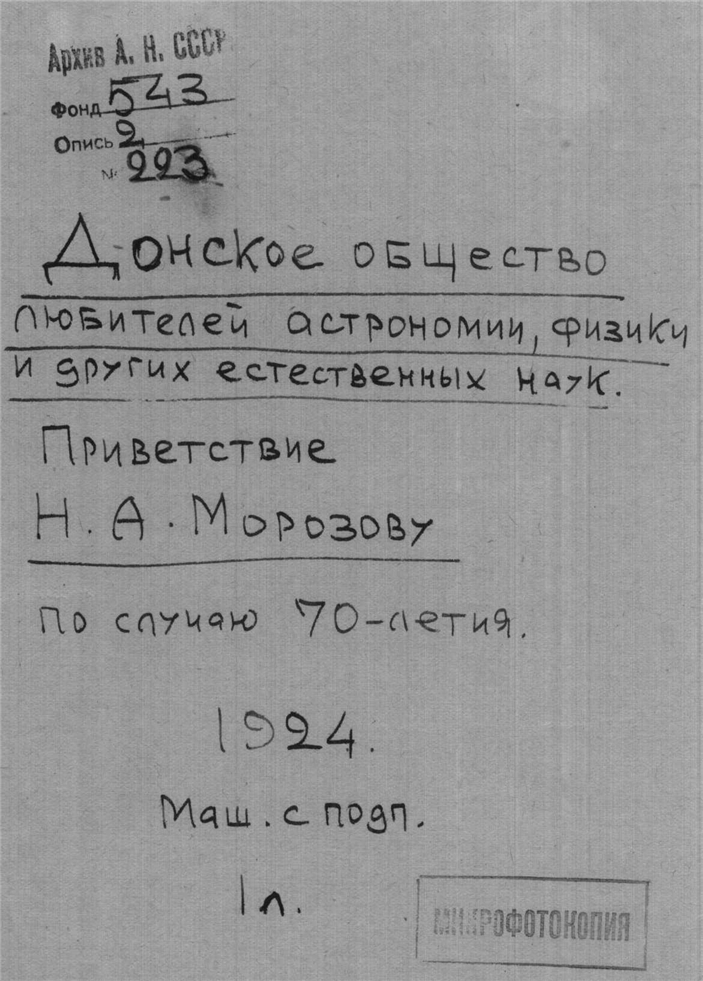 Архив А. Н. СССР
Фонд 543
Опись 2
№ 223
Донское общество
любителей астрономии, физики
и других естественных наук.
Приветствие
Н. А. Морозову
по случаю 70-летия.
1924.
Маш. с подп.
1 л.
МИКРОФОТОКОПИЯ